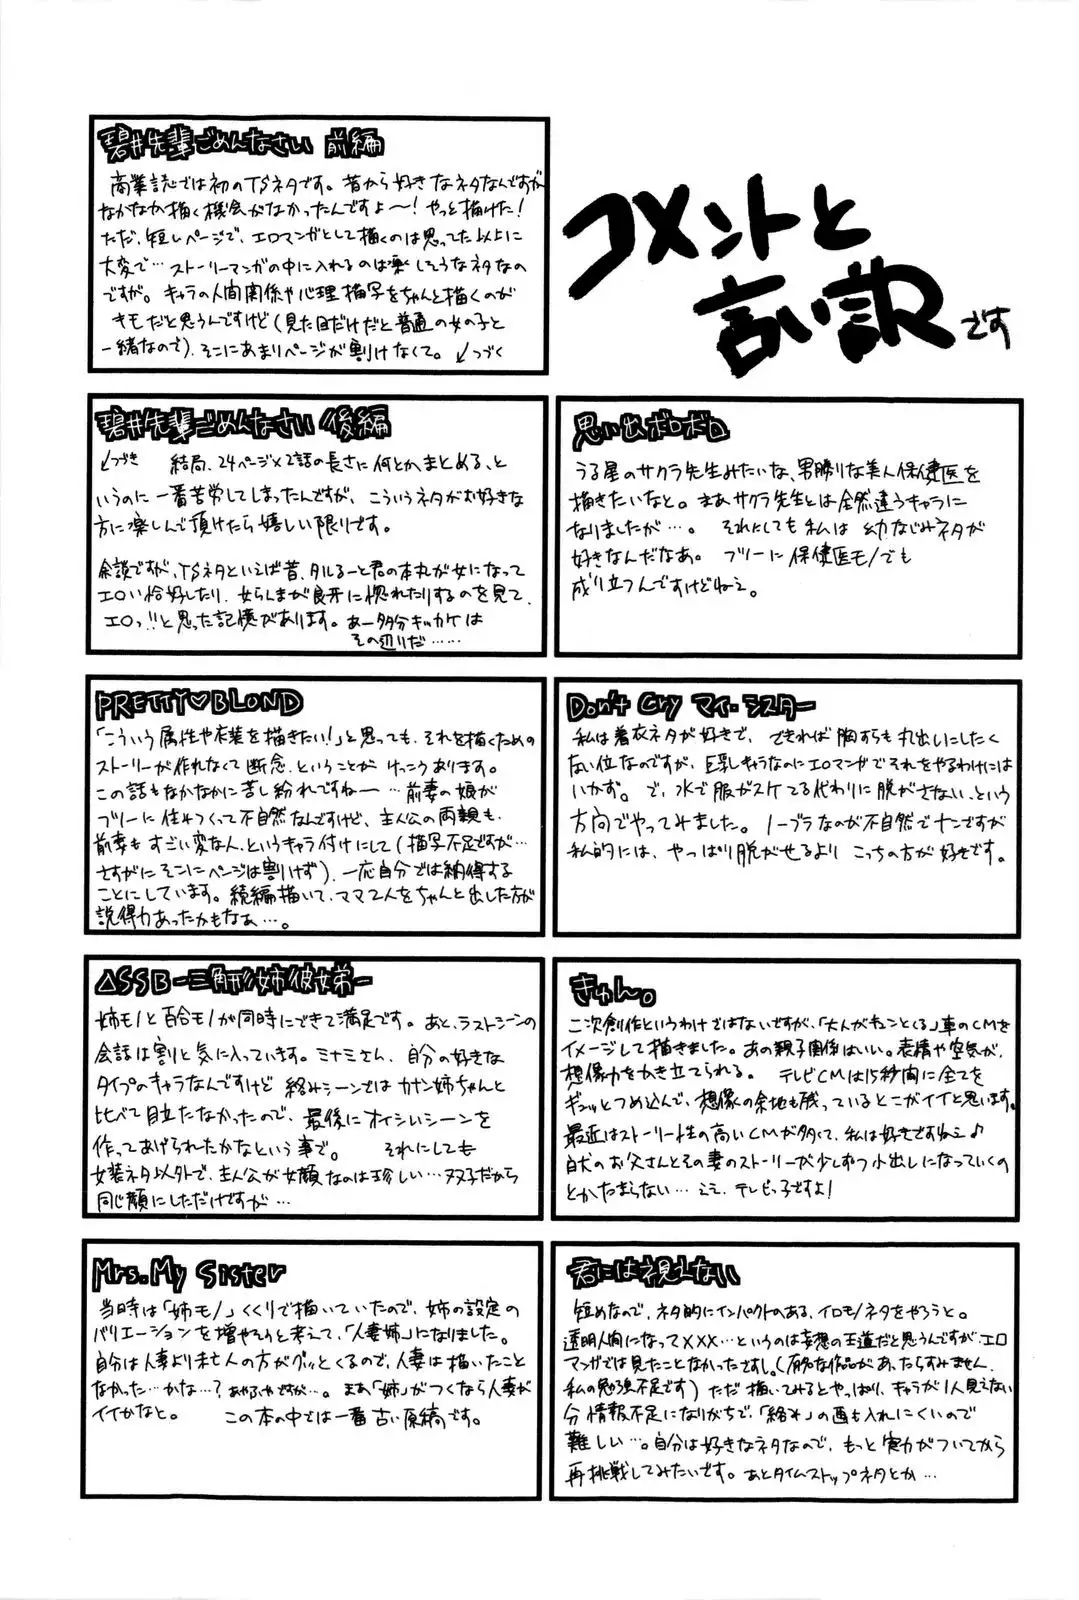 コメントと
言い訳です
碧井先輩ごめんなさい 前編
商業誌では初のTSネタです。昔から好きなネタなんですが
なかなか描く機会がなかったんですよ〜!やっと描けた!
ただ、短いページで、エロマンガとして描くのは思ってた以上に
大変で…ストーリーマンガの中に入れるのは楽しそうなネタなの
ですが。キャラの人間関係や心理描写をちゃんと描くのが
キモだと思うんですけど(見た目だけだと普通の女の子と
一緒なので)、そこにあまりページが割けなくて。↙つづく
碧井先輩ごめんなさい 後編
↙つづき 結局、24ページ×2話の長さに何とかまとめる、と
いうのに一番苦労してしまったんですが、こういうネタがお好きな
方に楽しんで頂けたら嬉しい限りです。
余談ですが、TSネタといえば昔、タルるート君の本丸が女になって
エロい恰好したり、女らんまが良牙に惚れたりするのを見て、
エロッ!!と思った記憶があります。あー多分キッカケは
その辺りだ……
思い出ボロボロ
うる星のサクラ先生みたいな、男勝りな美人保健医を
描きたいなと。まあサクラ先生とは全然違うキャラに
なりましたが…。それにしても私は幼なじみネタが
好きなんだなあ。フツーに保健医モノでも
成り立つんですけどねえ。
PRETTY♡BLOND
「こういう属性や衣装を描きたい!」と思っても、それを描くための
ストーリーが作れなくて断念、ということがけっこうあります。
この話もなかなかに苦し紛れですね〜…前妻の娘が
フツーに住みつくって不自然なんですけど、主人公の両親も、
前妻もすごい変な人、というキャラ付けにして(描写不足ですが…
さすがにそこにページは割けず)、一応自分では納得する
ことにしています。続編描いて、ママ2人をちゃんと出した方が
説得力あったかもなぁ…。
Don't Cry マイ・シスター
私は着衣ネタが好きで、できれば胸すらも丸出しにしたく
ない位なのですが、巨乳キャラなのにエロマンガでそれをやるわけには
いかず。で、水で服がスケてる代わりに脱がさない、という
方向でやってみました。ノーブラなのが不自然でナンですが
私的には、やっぱり脱がせるよりこっちの方が好きです。
△SSB-三角形/姉/彼女/弟-
姉モノと百合モノが同時にできて満足です。あと、ラストシーンの
会話は割と気に入っています。ミナミさん、自分の好きな
タイプのキャラなんですけど絡みシーンではカナン姉ちゃんと
比べて目立たなかったので、最後にオイシいシーンを
作ってあげられたかなという事で。それにしても
女装ネタ以外で、主人公が女顔なのは珍しい…双子だから
同じ顔にしただけですが…
きゅん。
二次創作というわけではないですが、「大人がキュンとくる」車のCMを
イメージして描きました。あの親子関係はいい。表情や空気が、
想像力をかき立てられる。テレビCMは15秒間に全てを
ギュッとつめ込んで、想像の余地も残っているとこがイイと思います。
最近はストーリー性の高いCMが多くて、私は好きですねえ♪
白犬のお父さんとその妻のストーリーが少しずつ小出しになっていくの
とかたまらない…ええ、テレビっ子ですよ!
Mrs. My Sister
当時は「姉モノ」くくりで描いていたので、姉の設定の
バリエーションを増やそうと考えて、「人妻姉」になりました。
自分は人妻より未亡人の方がグッとくるので、人妻は描いたこと
なかった…かな…?あやふやですが…。まあ「姉」がつくなら人妻が
イイかなと。 この本の中では一番古い原稿です。
君には視えない
短めなので、ネタ的にインパクトのある、イロモノネタをやろうと。
透明人間になって×××…というのは妄想の王道だと思うんですが、エロ
マンガでは見たことなかったですし。(有名な作品があったらすみません、
私の勉強不足です)ただ描いてみるとやっぱり、キャラが1人見えない
分情報不足になりがちで、「絡み」の画も入れにくいので
難しい…。自分は好きなネタなので、もっと実力がついてから
再挑戦してみたいです。あとタイムストップネタとか…